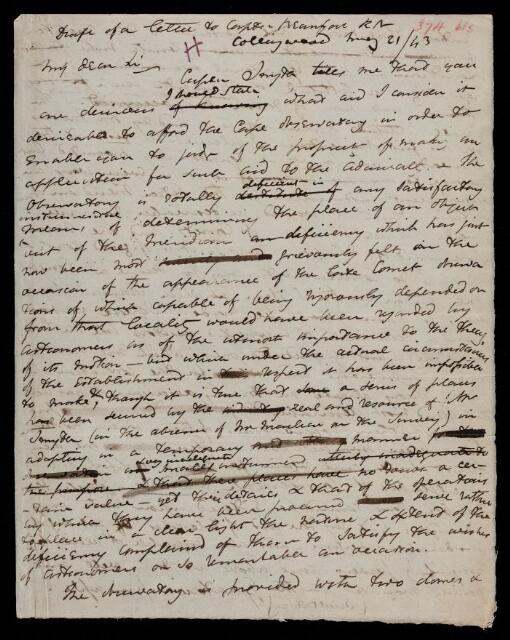 Draft of a letter to Captn Beaufort RN
374 bis
H Collingwood 21/43
My dear Sir
Captn Smyth tells me that you
are desirous I should state what aid I consider it
desirable to afford the Cape Observatory in order to
enable you to judge of the prospect of making an
application for such aid to the Admiralty. The
Observatory is totally deficient in any satisfactory
instrumental
means of determining the place of an object
out of the Meridian a deficiency which has just
now been most grievously felt on the
occasion of the appearance of the late Comet Observa
tions of which capable of being rigorously depended on
from that locality would have been regarded by
astronomers as of the utmost importance to the theory
of its motion but which under the actual circumstances
of the Establishment in this respect it has been impossible
to make, though it is true that a series of places
has been secured by the zeal and resource of Mr
Smyth (in the absence of Mr Maclear on the Survey) in
adapting in a temporary manner
a small instrument
no doubt a cer-
-tain value yet their details & that of the operations
by which they have been procured serve rather
to place in a clear light the nature & extent of the
deficiency complained of than to satisfy the wishes
of astronomers on so remarkable an occasion.
The Observatory is provided with two domes &